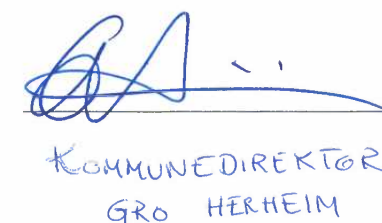 KOMMUNEDIREKTØR
GRO HERHEIM